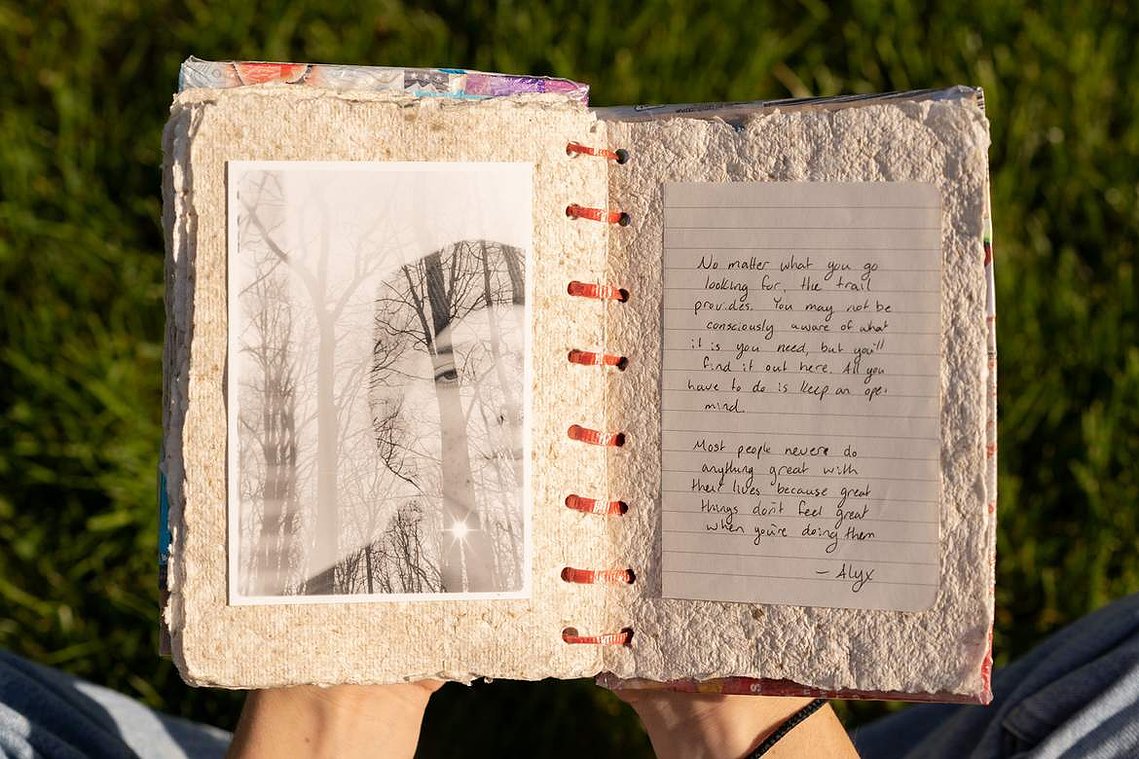 No matter what you go
looking for, the trail
provides. You may not be
consciously aware of what
it is you need, but you'll
find it out here. All you
have to do is keep an open
mind.
Most people never do
anything great with
their lives because great
things don't feel great
when you're doing them
- Alyx